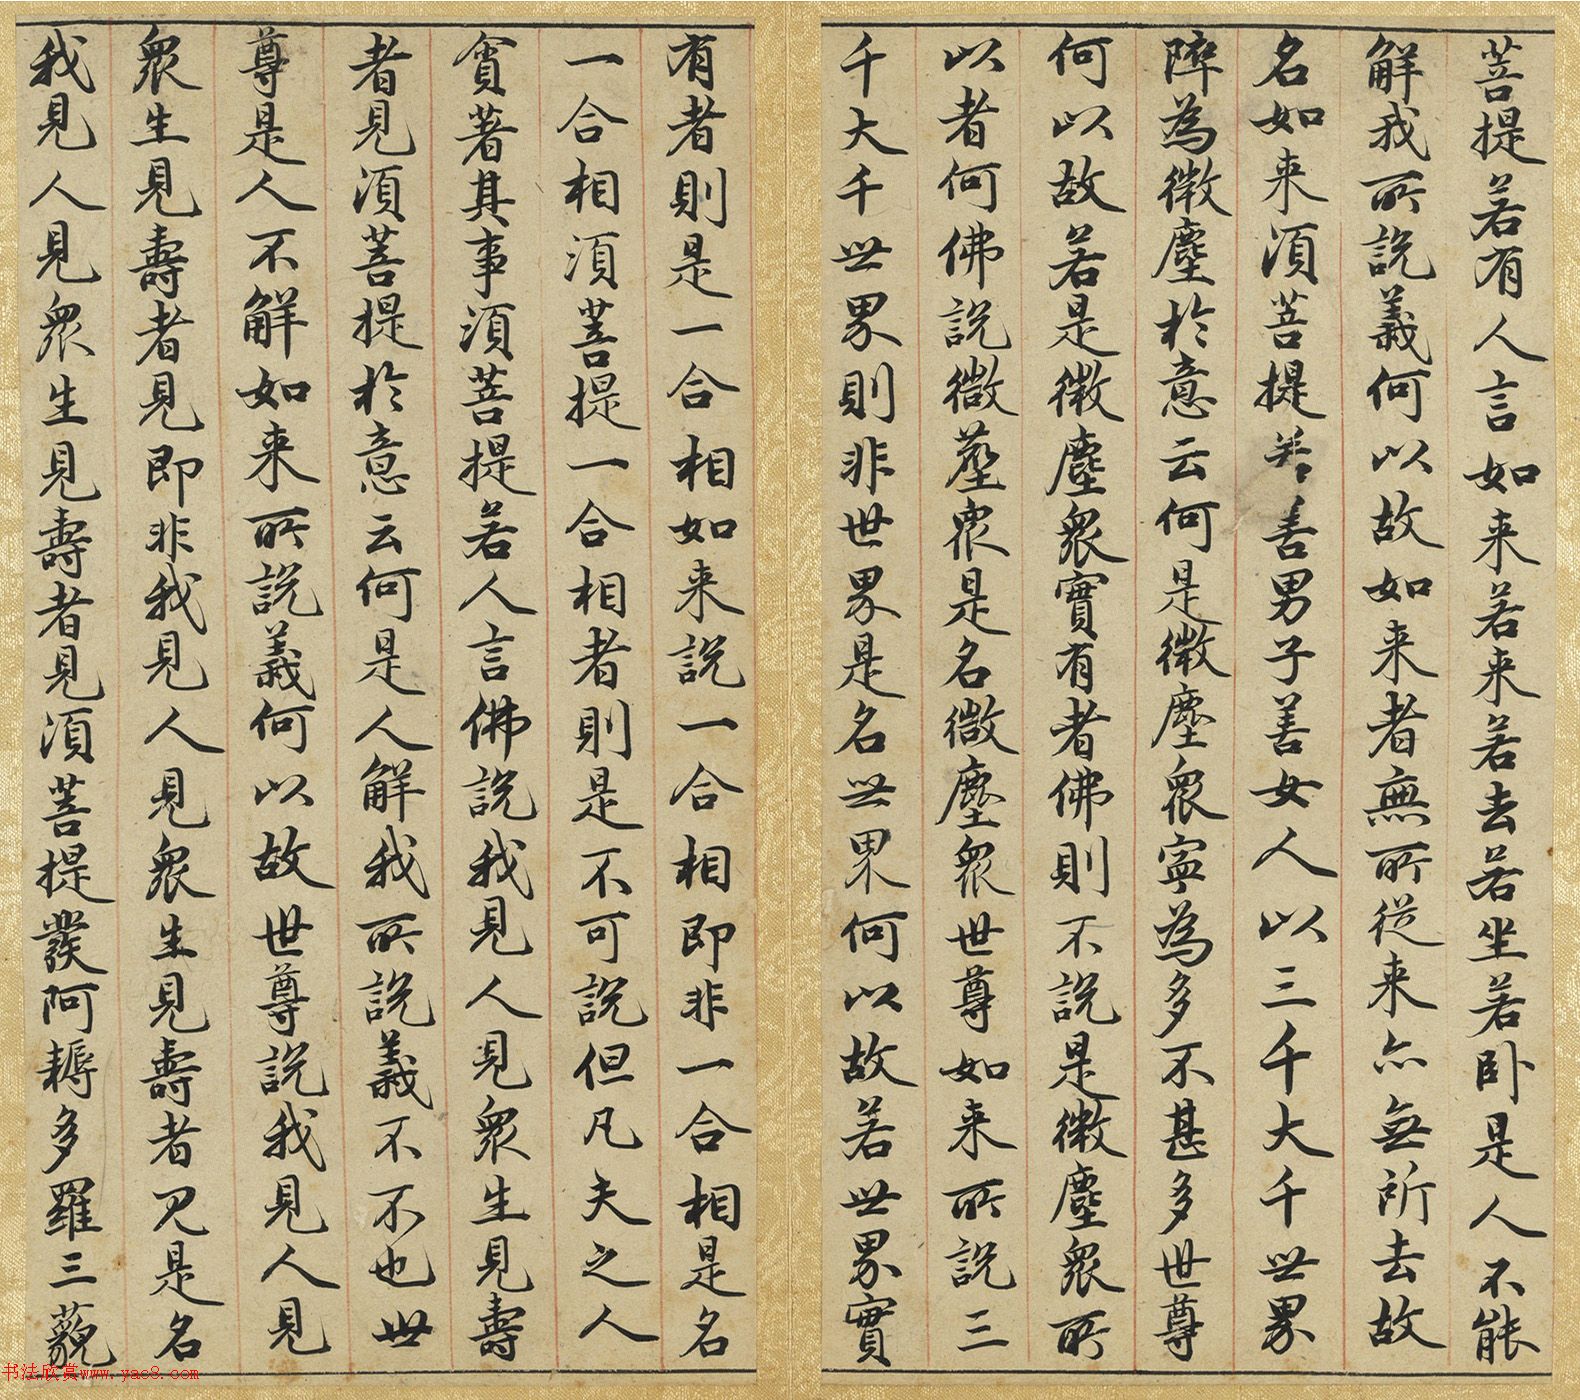 菩提若有人言如来若来若去若坐若卧是人不能
解我所說義何以故如来者無所從来亦無所去故
名如来須菩提若善男子善女人以三千大千世界
碎為微塵於意云何是微塵衆寧為多不甚多世尊
何以故若是微塵衆實有者佛則不說是微塵衆所
以者何佛說微塵衆是名微塵衆世尊如来所說三
千大千世界則非世界是名世界何以故若世界實
有者則是一合相如来說一合相即非一合相是名
一合相須菩提一合相者則是不可說但凡夫之人
貪著其事須菩提若人言佛說我見人見衆生見壽
者見須菩提於意云何是人解我所說義不不也世
尊是人不解如来所說義何以故世尊說我見人見
衆生見壽者見即非我見人見衆生見壽者見是名
我見人見衆生見壽者見須菩提發阿耨多羅三藐
书法欣赏www.yac8.com